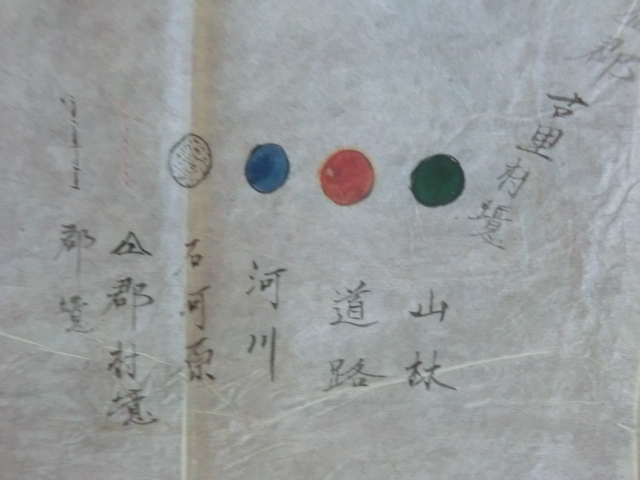 郡
古里村境
山林
道路
河川
石河原
郡村境
郡境